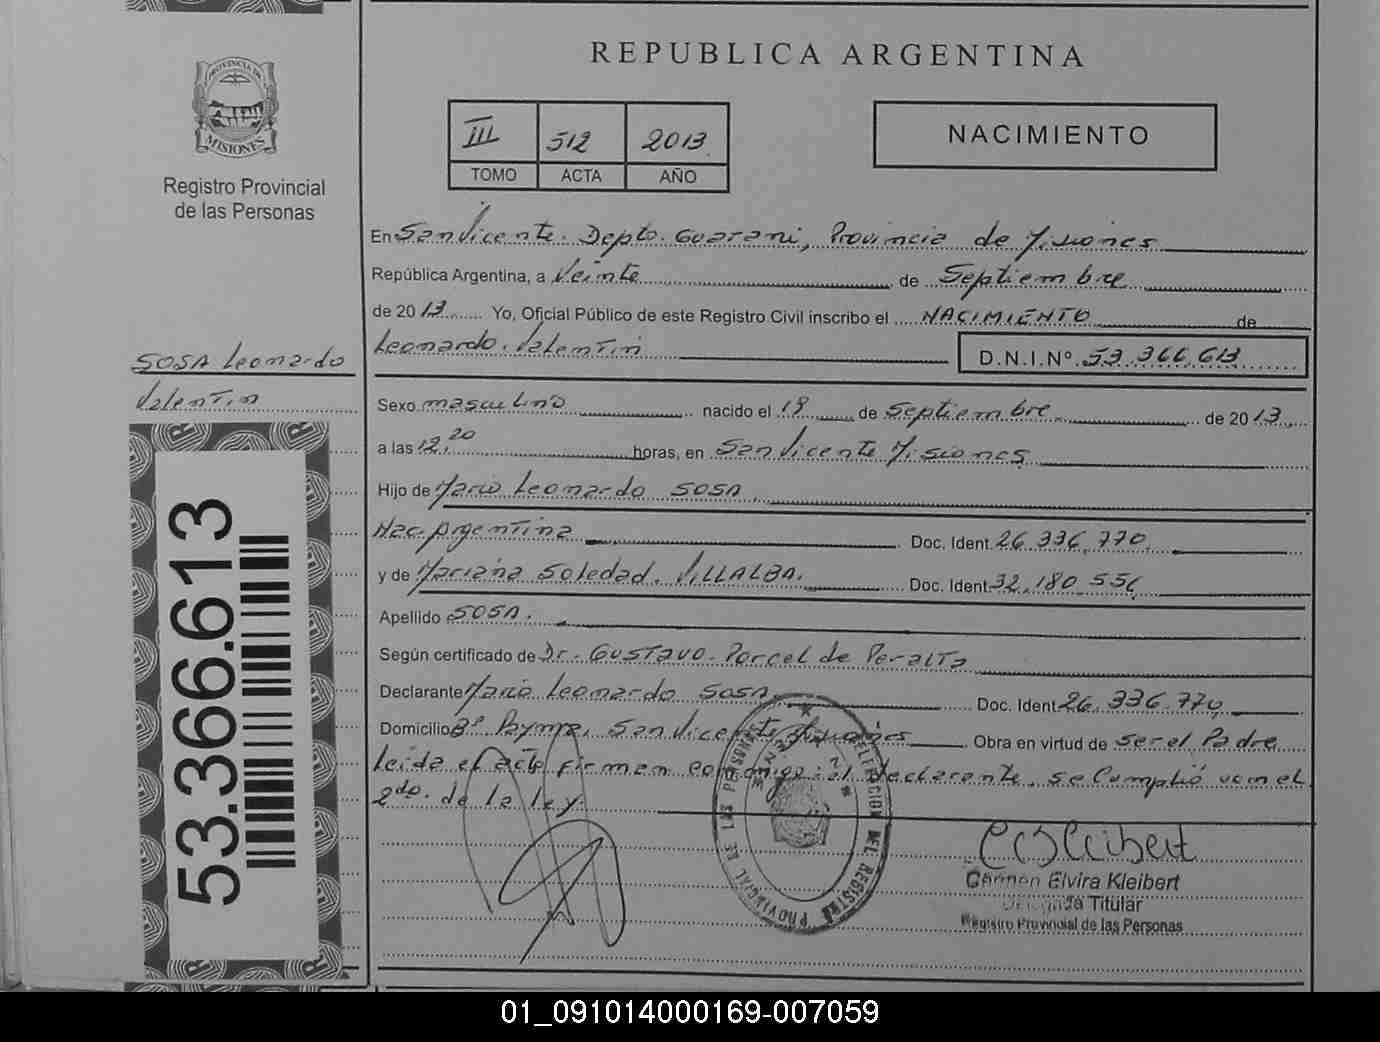 REPUBLICA ARGENTINA
PROVINCIA DE
MISIONES
Registro Provincial
de las Personas
III 512 2013
TOMO ACTA AÑO
NACIMIENTO
En San Vicente. Depto. Guarani, Provincia de Misiones
República Argentina, a Veinte de Septiembre
de 2013 Yo, Oficial Público de este Registro Civil inscribo el NACIMIENTO de
Leonardo Valentin D.N.I.Nº 53.366.613
SOSA Leonardo
Valentin
Sexo masculino nacido el 19 de Septiembre de 2013
a las 12,20 horas, en San Vicente Misiones
Hijo de Mario Leonardo SOSA
Nac. Argentina Doc. Ident. 26.336.770
y de Mariana Soledad VILLALBA. Doc. Ident. 32.180.556
Apellido SOSA.
Según certificado de Dr. Gustavo Porcel de Peralta
Declarante Mario Leonardo SOSA Doc. Ident. 26.336.770
Domicilio Bº San Vicente Misiones Obra en virtud de ser el Padre
Leida el acta firman conmigo: el declarante, se Cumplió con el
2do. de la ley.
53.366.613
PROVINCIAL DE LAS PERSONAS
DEL REGISTRO
Carmen Elvira Kleibert
Delegada Titular
Registro Provincial de las Personas
01_091014000169-007059